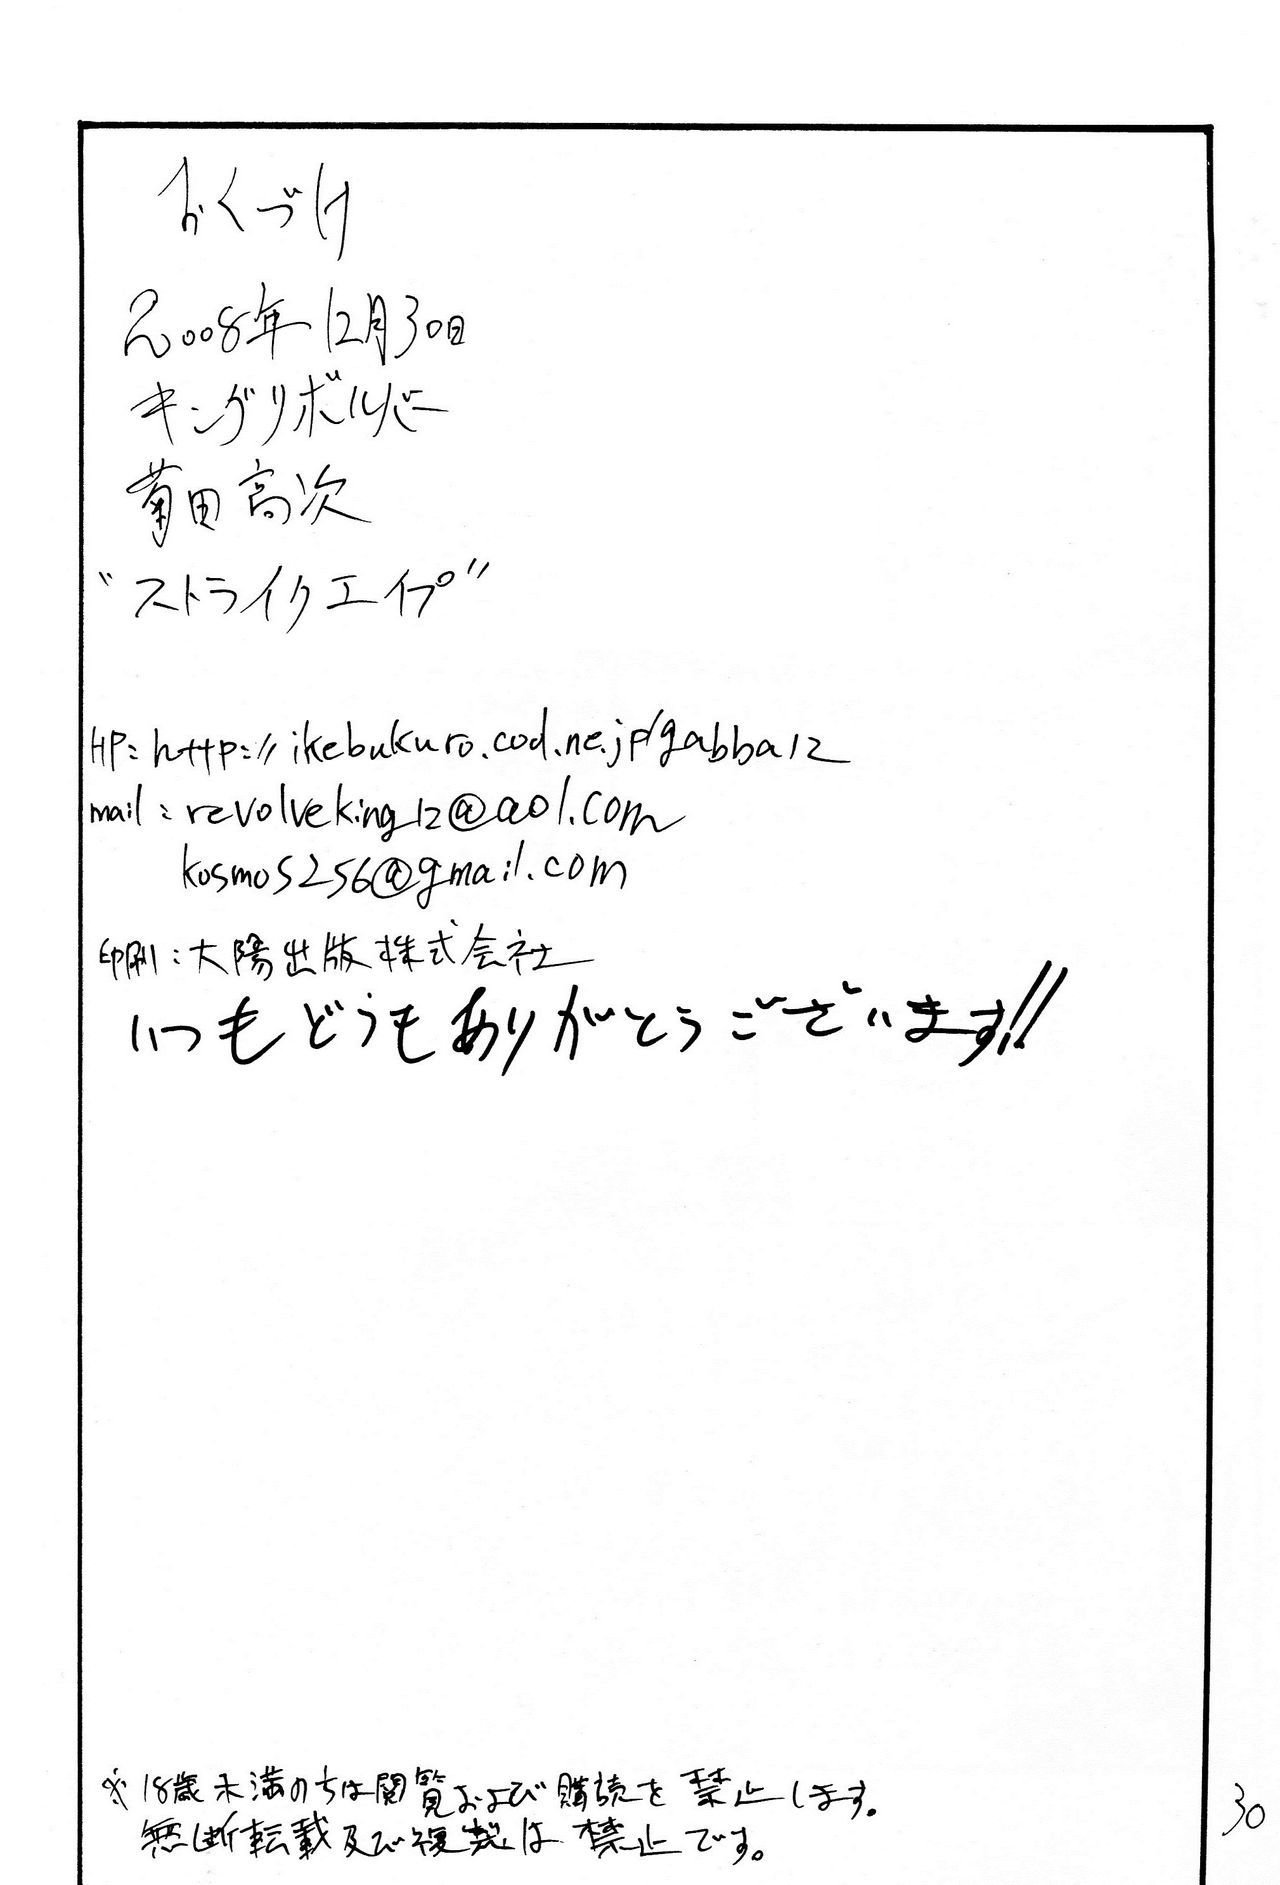 おくづけ
2008年12月30日
キングリボルバー
菊田高次
"ストライクエイプ"
HP: http://ikebukuro.cod.ne.jp/gabba12
mail: revolveking12@aol.com
kosmos256@gmail.com
印刷: 大陽出版株式会社
いつもどうもありがとうございます!!
※18歳未満のちは閲覧および購読を禁止します。
無断転載及び複製は禁止です。
30